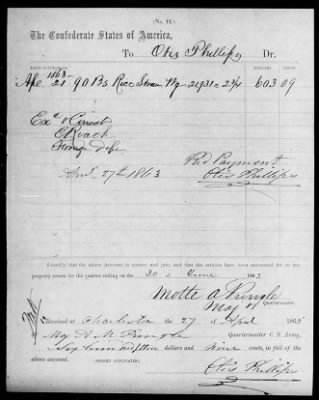 (No. 12.)
The Confederate States of America,
To Otis Phillips Dr.
1863
Apl 21 90 Bs Rice Straw Wg 21931 @ 2¾ 603 09
Exd & Correct
E Roach
Forage Dept
Recd Payment
Otis Phillips
April 27th 1863
I certify, that the above Account is correct and just, and that the articles have been accounted for on my
property return for the quarter ending on the 30 June 1863
Motte A Pringle
Maj & Qr
Quartermaster
Received at Charleston the 27 of April 1863
Maj M A Pringle Quartermaster C. S. Army,
Six hundred three dollars and nine cents, in full of
the above account.
(SIGNED DUPLICATES)
Otis Phillips